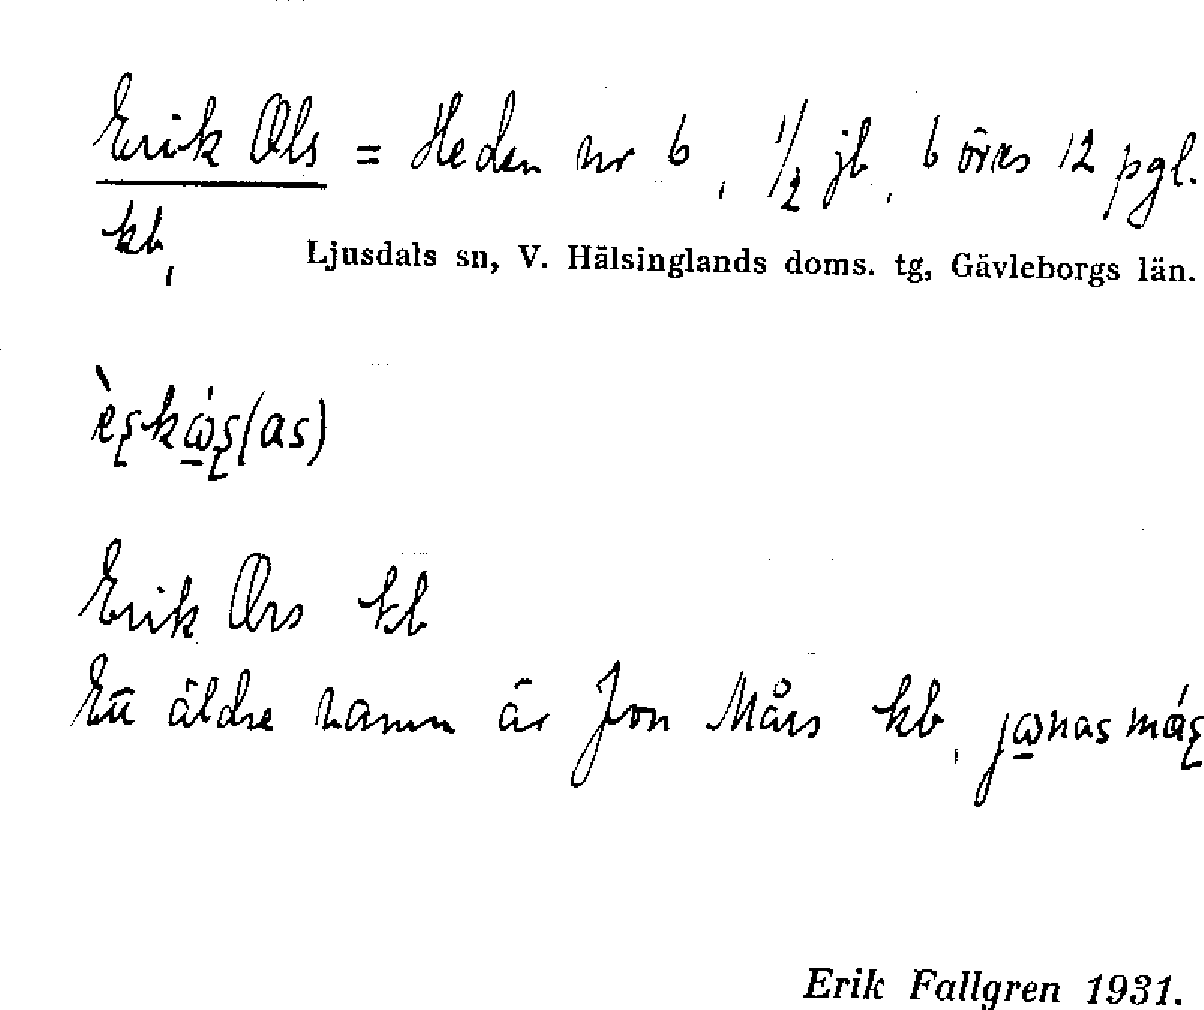 Erik Ols = Heden nr 6, 1/2 jb, 6 öres 12 pgl.
kb,
Ljusdals sn, V. Hälsinglands doms. tg, Gävleborgs län.
Erik Ors kb
Ett äldre namn är Jon Mårs kb,
Erik Fallgren 1931.